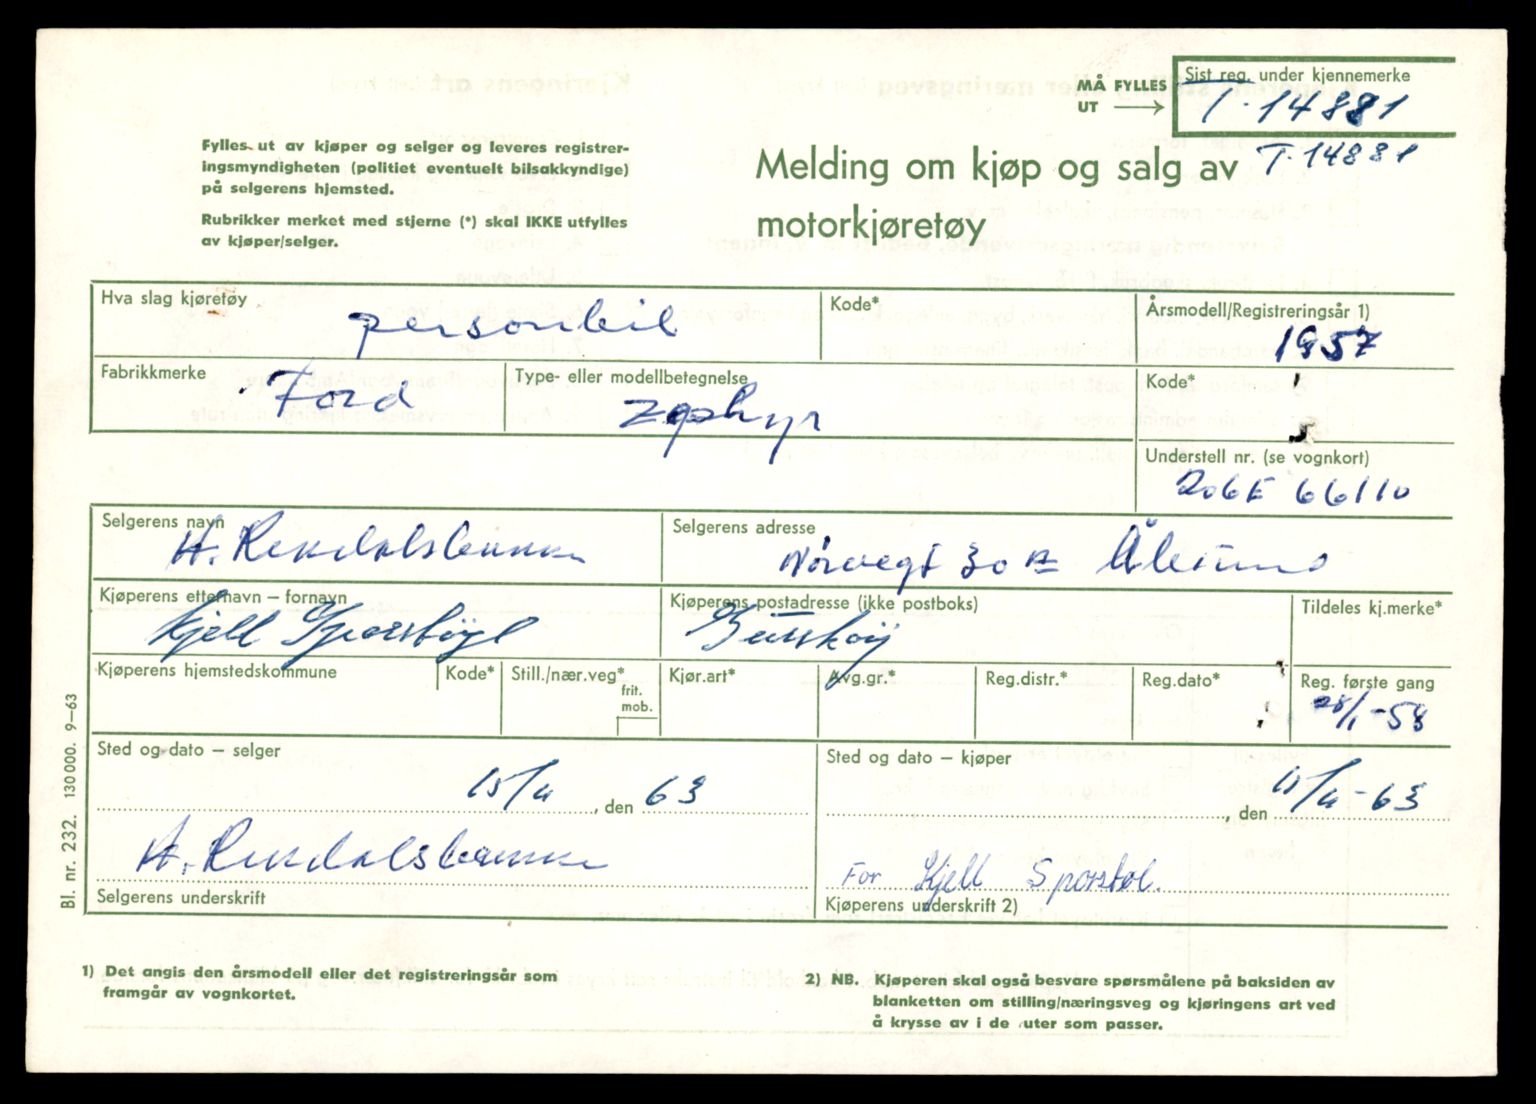 MÅ FYLLES UT →
Sist reg. under kjennemerke
T-14881
T-14881
Fylles ut av kjøper og selger og leveres registrer-
ingsmyndigheten (politiet eventuelt bilsakkyndige)
på selgerens hjemsted.
Rubrikker merket med stjerne (*) skal IKKE utfylles
av kjøper/selger.
Melding om kjøp og salg av
motorkjøretøy
Hva slag kjøretøy
personbil
Kode*
Årsmodell/Registreringsår 1)
1957
Fabrikkmerke
Ford
Type- eller modellbetegnelse
Zephyr
Kode*
Understell nr. (se vognkort)
206E 66110
Selgerens navn
H. Rekdalsbakken
Selgerens adresse
Norvegt 30 B Ålesund
Kjøperens etternavn – fornavn
Kjell Sporstøyl
Kjøperens postadresse (ikke postboks)
Gurskøy
Tildeles kj.merke*
Kjøperens hjemstedskommune
Kode*
Still./nær.veg*
frit.
mob.
Kjør.art*
Avg.gr.*
Reg.distr.*
Reg.dato*
Reg. første gang
28/1-58
Sted og dato – selger
15/11, den 63
Sted og dato – kjøper
, den 15/11-63
H. Rekdalsbakken
Selgerens underskrift
For Kjell Sporstøl.
Kjøperens underskrift 2)
Bl. nr. 232. 130 000. 9–63
1) Det angis den årsmodell eller det registreringsår som
framgår av vognkortet.
2) NB. Kjøperen skal også besvare spørsmålene på baksiden av
blanketten om stilling/næringsveg og kjøringens art ved
å krysse av i de ruter som passer.